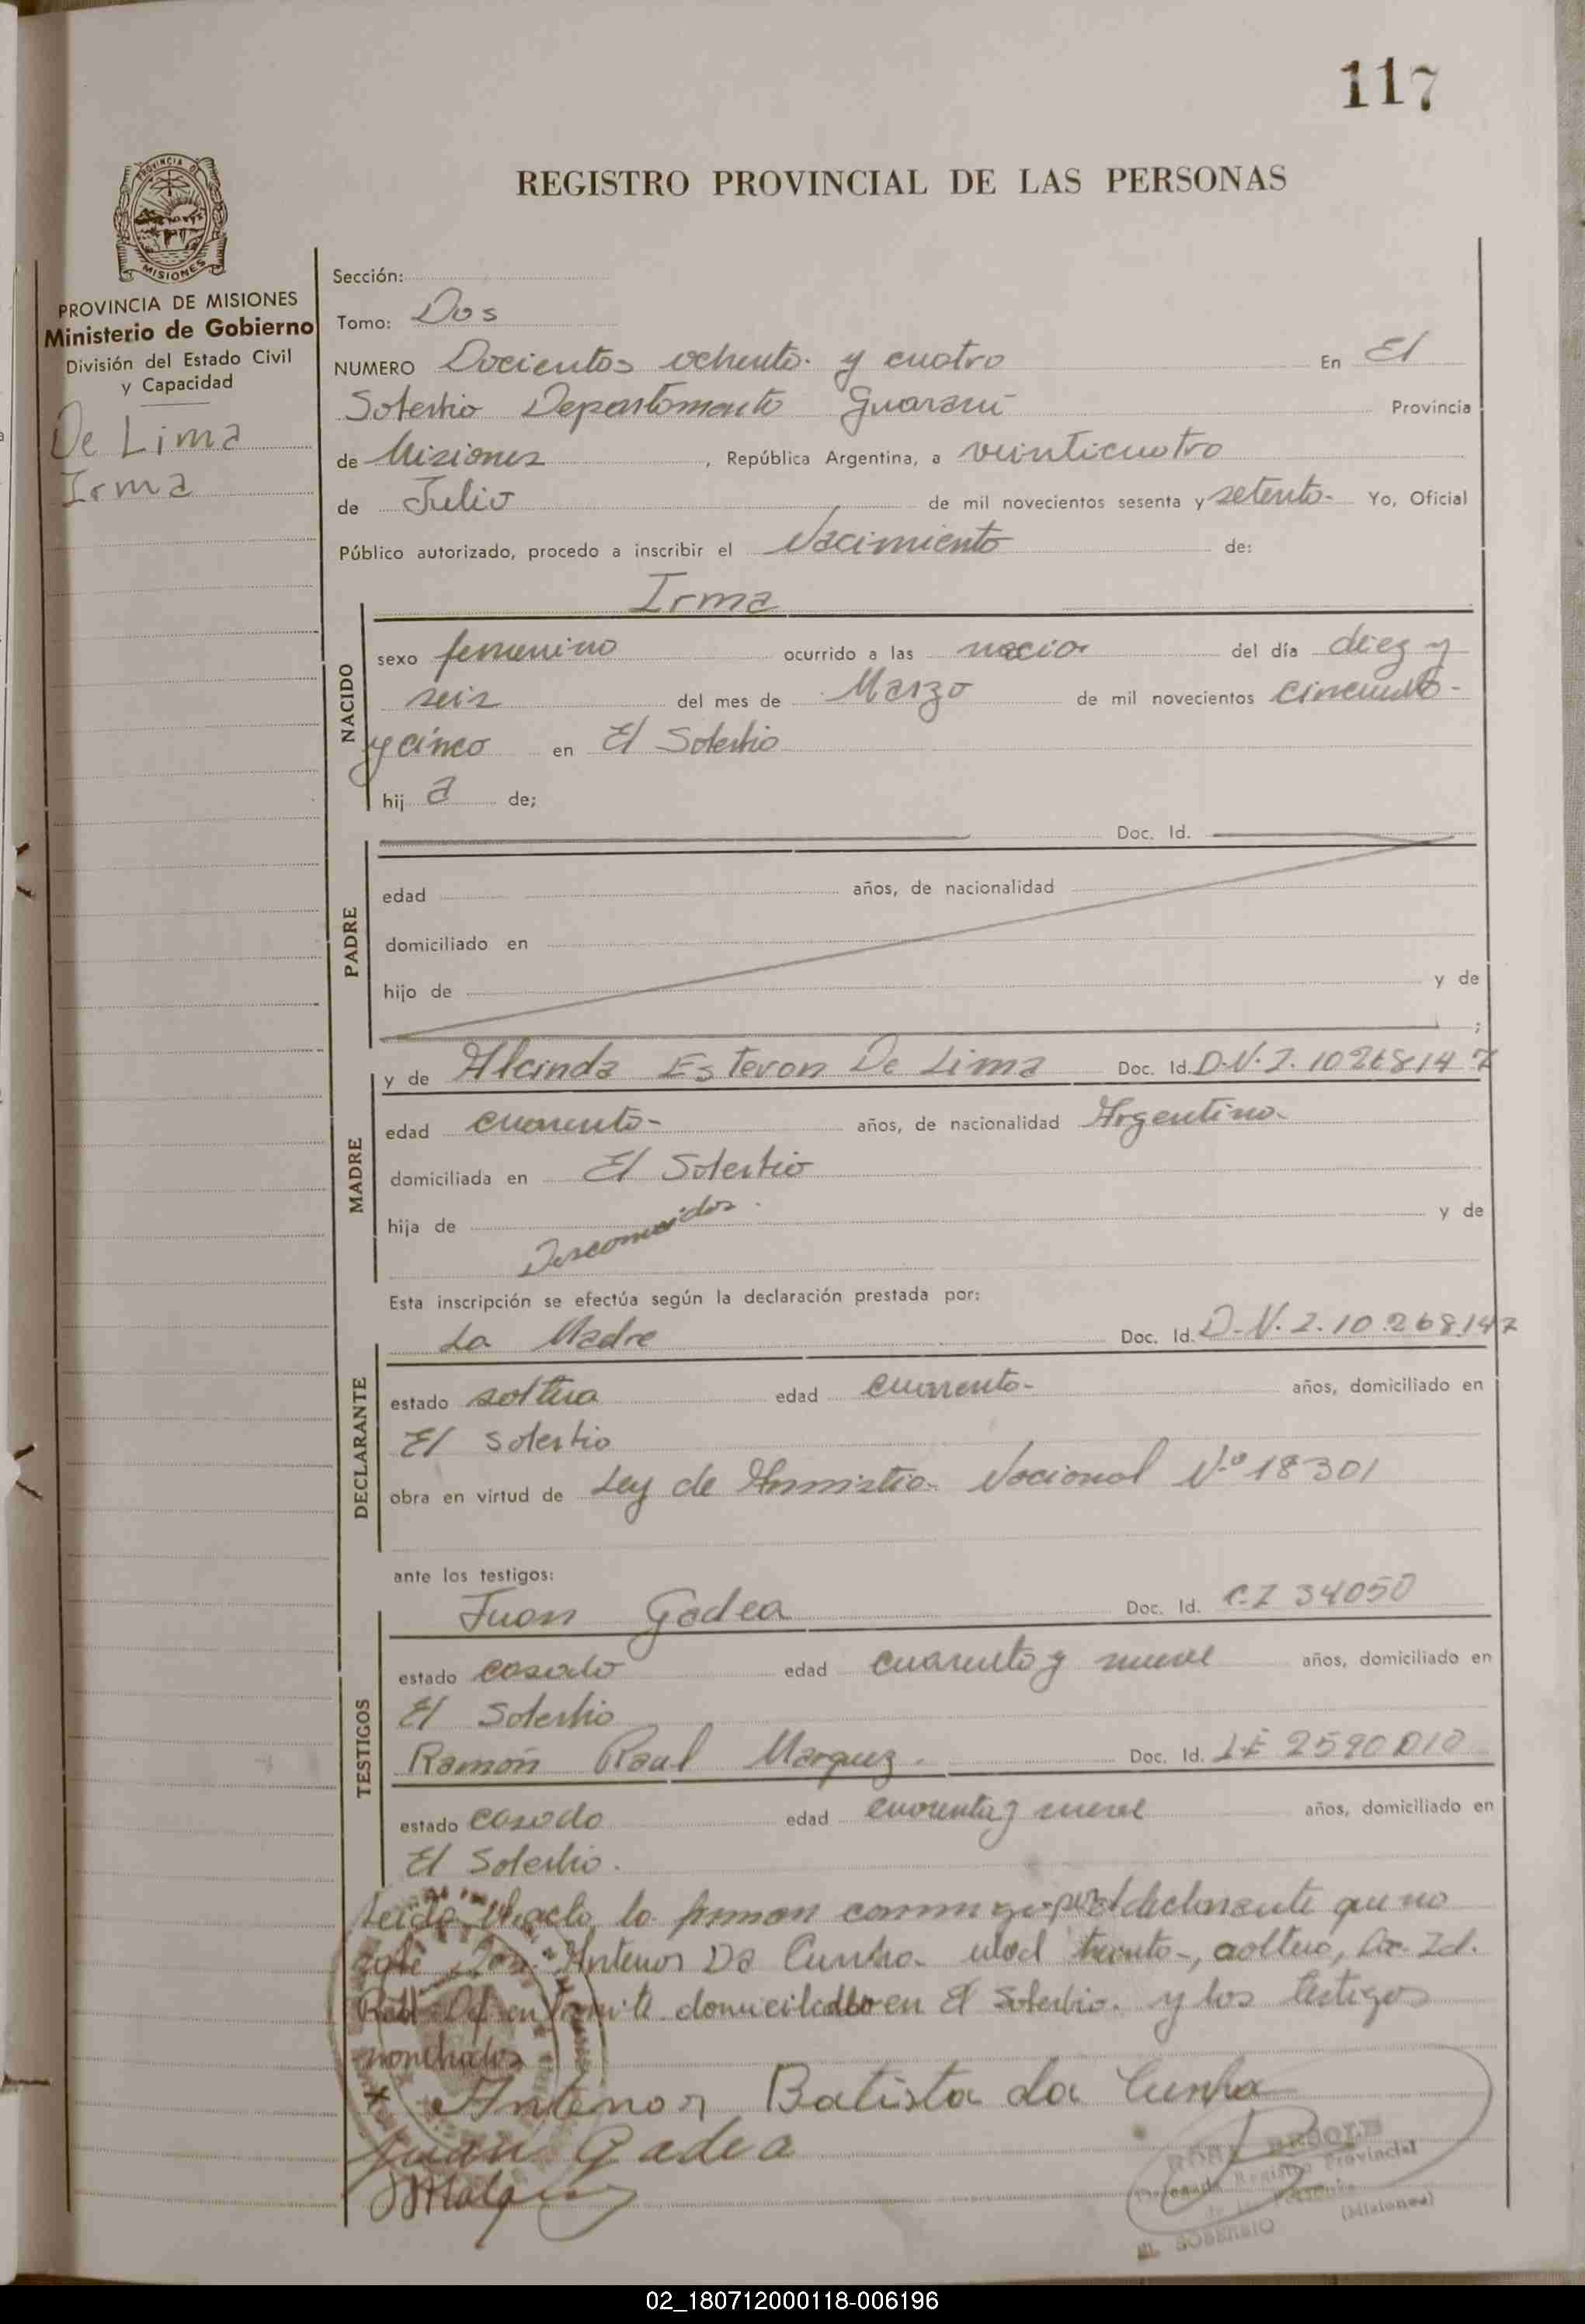 117
REGISTRO PROVINCIAL DE LAS PERSONAS
PROVINCIA DE MISIONES
PROVINCIA DE MISIONES
Ministerio de Gobierno
División del Estado Civil
y Capacidad
De Lima
Irma
Sección:
Tomo: Dos
NUMERO Docientos ochenta y cuatro En El
Soberbio Departamento Guaraní Provincia
de Misiones, República Argentina, a veinticuatro
de Julio de mil novecientos sesenta y setenta Yo, Oficial
Público autorizado, procedo a inscribir el Nacimiento de:
Irma
NACIDO
sexo femenino ocurrido a las nacio del día diez y
seis del mes de Marzo de mil novecientos cincuenta
y cinco en El Soberbio
hij a de;
PADRE
Doc. Id.
edad años, de nacionalidad
domiciliado en
hijo de y de
;
MADRE
y de Alcinda Estevon De Lima Doc. Id. D.N.I. 10268147
edad cuarenta años, de nacionalidad Argentina
domiciliada en El Soberbio
hija de Desconocidos. y de
Esta inscripción se efectúa según la declaración prestada por:
DECLARANTE
La Madre Doc. Id. D.N.I. 10.268.147
estado soltera edad cuarenta años, domiciliado en
El Soberbio
obra en virtud de Ley de Amnistia Nacional N.º 18301
ante los testigos:
TESTIGOS
Juan Gadea Doc. Id. C.I 34050
estado casado edad cuarenta y nueve años, domiciliado en
El Soberbio
Ramón Raul Marquez. Doc. Id. LE 2590010
estado casado edad cuarenta y nueve años, domiciliado en
El Soberbio.
Leida el acta la firman conmigo por declarante que no
Antenor Da Cunha edad treinta, soltero, Doc. Id.
en tramite domiciliado en El Soberbio. y los testigos
nombrados
x Antenor Batista da Cunha
Juan Gadea
Registro Provincial
de las Personas
EL SOBERBIO (Misiones)
02_180712000118-006196